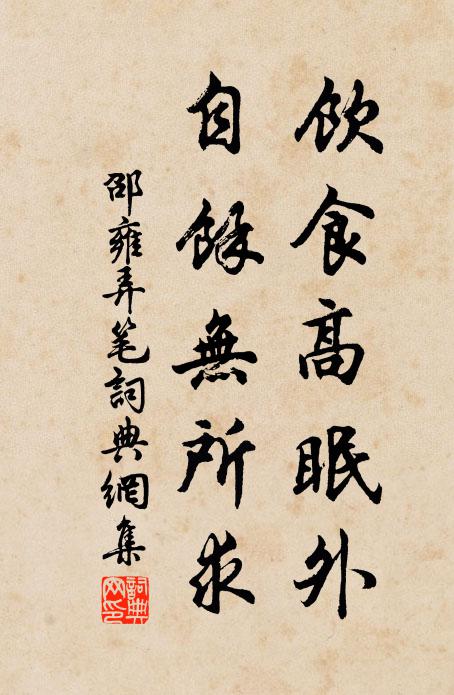 飲食高眠外
自餘無所求
邵雍弄笔詞典網集
詞典網印